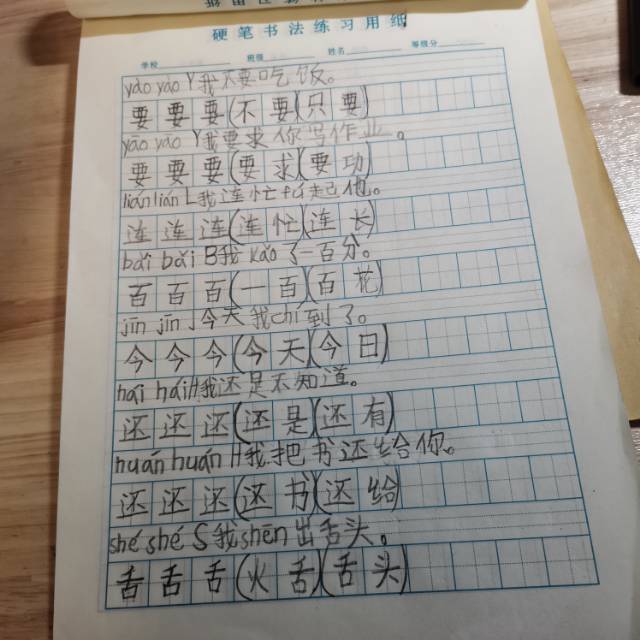 硬笔书法练习用纸
学校 班级 姓名 等级分
yào yào Y 我不要吃饭。
要 要 要(不 要)(只 要)
yāo yāo Y 我要求你写作业。
要 要 要(要 求)(要 功)
lián lián L 我连忙扶起他。
连 连 连(连 忙)(连 长)
bǎi bǎi B 我 kǎo 了一百分。
百 百 百(一 百)(百 花)
jīn jīn J 今天我 chí 到了。
今 今 今(今 天)(今 日)
hái hái H 我还是不知道。
还 还 还(还 是)(还 有)
huán huán H 我把书还给你。
还 还 还(还 书)(还 给)
shé shé S 我 shēn 出舌头。
舌 舌 舌(火 舌)(舌 头)